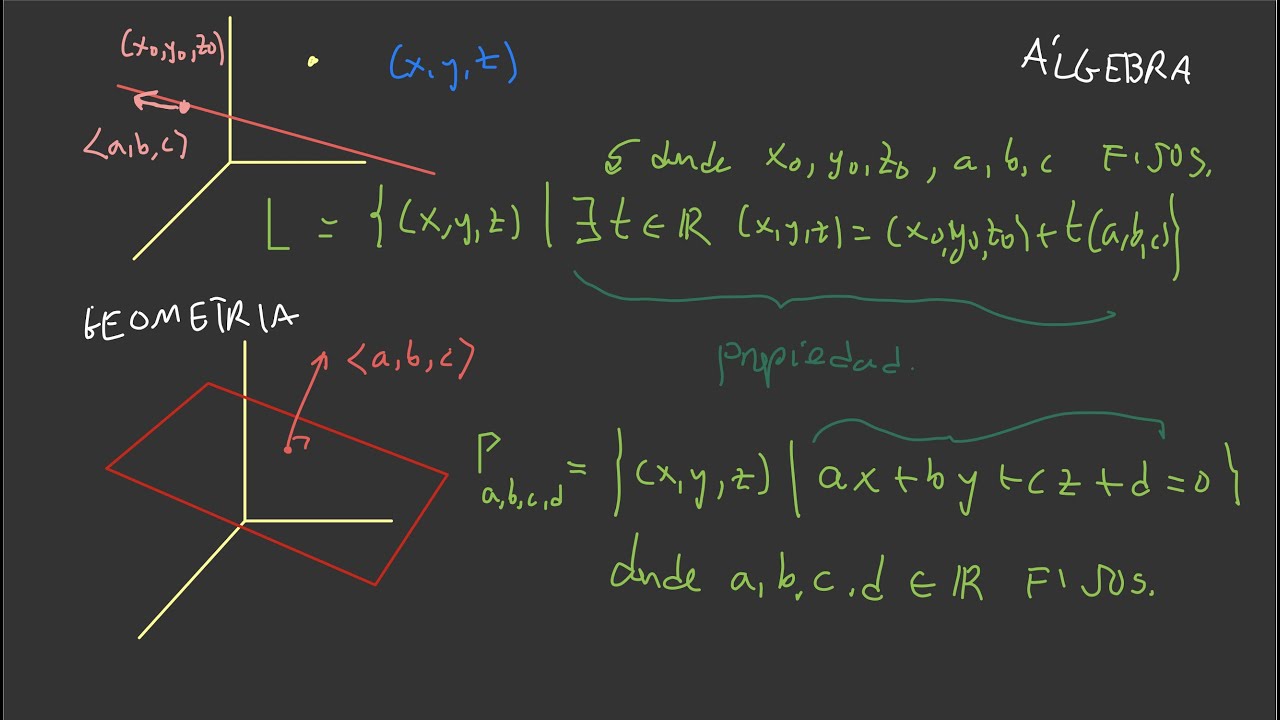 (x₀,y₀,z₀)
(x,y,z)
ÁLGEBRA
<a,b,c>
donde x₀,y₀,z₀, a,b,c FIJOS.
L = {(x,y,z) | ∃ t ∈ ℝ (x,y,z) = (x₀,y₀,z₀)+t(a,b,c)}
GEOMETRIA
propiedad.
<a,b,c>
P a,b,c,d = {(x,y,z) | ax+by+cz+d=0}
donde a,b,c,d ∈ ℝ FIJOS.